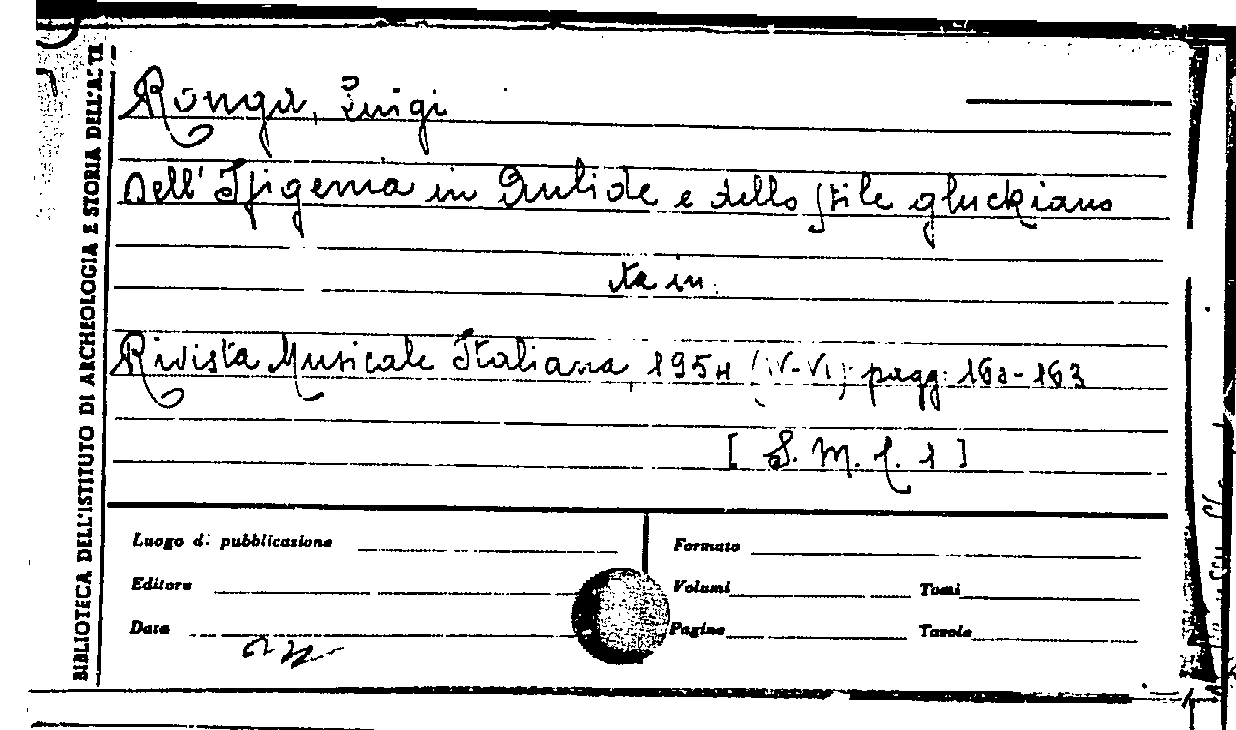 BIBLIOTECA DELL'ISTITUTO DI ARCHEOLOGIA E STORIA DELL'ARTE
Ronga, Luigi
Dell'Ifigenia in Aulide e dello stile gluckiano
sta in:
Rivista Musicale Italiana, 1954 (IV-VI) pagg:
[S. M. f. 1]
Luogo di pubblicazione
Formato
Editore
Volumi Tomi
Data
Pagine Tavole